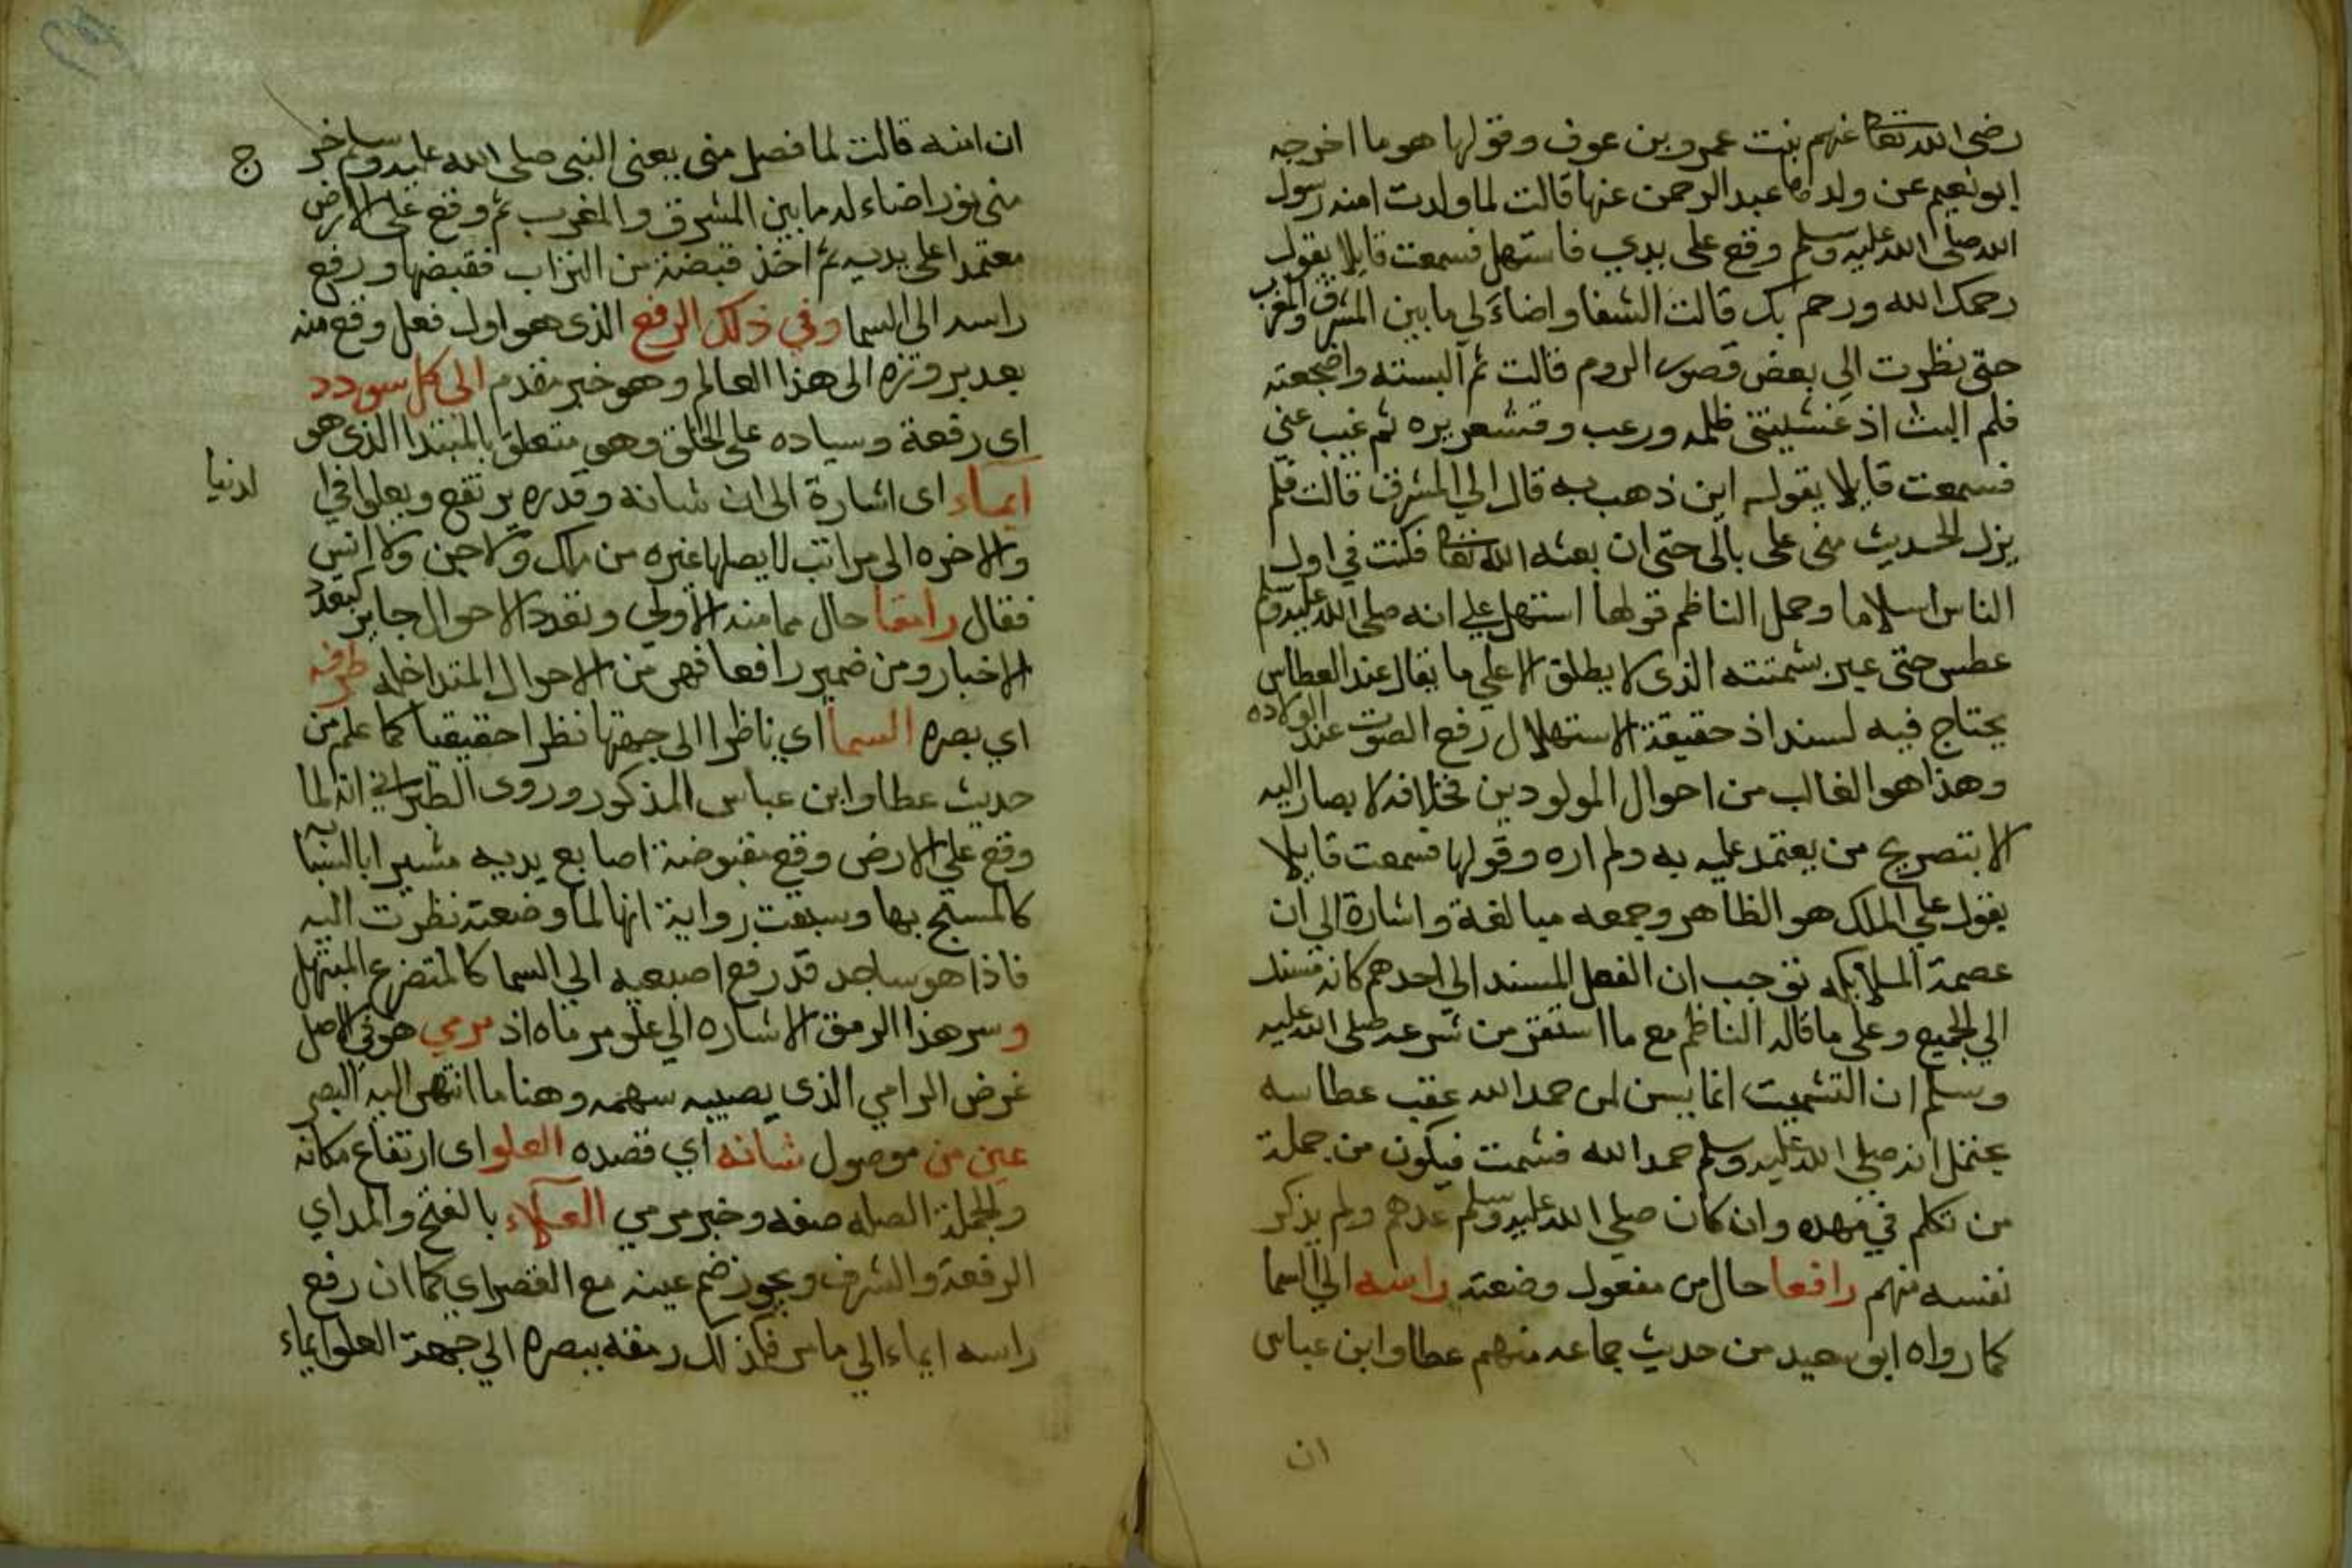 رضي الله تعا عنهم بنت عمرو بن عوف وقولها هو ما اخرجه
ابو نعيم عن ولدها عبد الرحمن عنها قالت لما ولدت امنه رسول
الله صلى الله عليه وسلم وقع على يدي فاستهل فسمعت قايلا يقول
رحمك الله ورحم بك قالت الشفا واضاء لي ما بين المشرق والمغرب
حتى نظرت الي بعض قصور الروم قالت ثم البسته واضجعته
فلم البث اذ غشيتني ظلمه ورعب وقشعريره ثم غيب عني
فسمعت قايلا يقول اين ذهب به قال الي المشرق قالت فلم
يزل الحديث مني على بالي حتى ان بعثه الله تعا فكنت في اول
الناس اسلاما وحمل الناظم قولها استهل علي انه صلى الله عليه وسلم
عطس حتى عبر بشمتته الذي لا يطلق الا علي ما يقال عند العطاس
يحتاج فيه لسند اذ حقيقة الاستهلال رفع الصوت عند الولاده
وهذا هو الغالب من احوال المولودين فخلافه لا يصار اليه
الا بتصريح من يعتمد عليه به ولم اره وقولها فسمعت قايلا
يقول علي الملك هو الظاهر وجمعه مبالغة واشارة الي ان
عصمة الملايكه توجب ان الفعل المسند الي احدهم كانه مسند
الي الجميع وعلي ما قاله الناظم مع ما استقر من شرعه صلى الله عليه
وسلم ان التشميت انما يسن لمن حمد الله عقب عطاسه
يحتمل انه صلي الله عليه وسلم حمد الله فشمت فيكون من جملة
من تكلم في مهده وان كان صلي الله عليه وسلم عدهم ولم يذكر
نفسه منهم رافعا حال من مفعول وضعته راسه الي السما
كما رواه ابو سعيد من حديث جماعه منهم عطا وابن عباس
ان
ان امنه قالت لما فصل مني يعني النبي صلى الله عليه وسلم خر
ج
مني نور اضاء له ما بين المشرق والمغرب ثم وقع علي الارض
معتمدا على يديه ثم اخذ قبضة من التراب فقبضها ورفع
راسه الى السما وفي ذلك الرفع الذي هو اول فعل وقع منه
بعد بروزه الى هذا العالم وهو خبر مقدم الي كل سودد
اى رفعة وسياده على الخلق وهو متعلق بالمبتدا الذي هو
ايماء اى اشارة الى ان شانه وقدره يرتفع ويعلوا في ا
لدنيا
والاخره الى مراتب لا يصلها غيره من ملك ولا جن ولا انس
فقال رامقا حال مما منه الاولي وتعدد الاحوال جايز كتعدد
الاخبار ومن ضمير رافعا فهي من الاحوال المتداخله طرفه
اي بصره السما اي ناظرا الى جهتها نظرا حقيقيا كما علم من
حديث عطا وابن عباس المذكور وروى الطبراني انه لما
وقع علي الارض وقع مقبوضة اصابع يديه مشيرا بالسبابة
كالمسبح بها وسبقت رواية انها لما وضعته نظرت اليه
فاذا هو ساجد قد رفع اصبعيه الي السما كالمتضرع المبتهل
وسر هذا الرمق الاشاره الي علو مرماه اذ مرمي هو في الاصل
غرض الرامي الذي يصيبه سهمه وهنا ما انتهى اليه البصر
عين من موصول شانه اي قصده العلو اى ارتفاع مكانه
والجملة الصله صفه وخبر مرمي العلاء بالفتح والمد اي
الرفعة والشرف ويجوز ضم عينه مع القصر اي كما ان رفع
راسه ايماء الي ما مر فكذلك رمقه ببصره الي جهة العلو ايماء